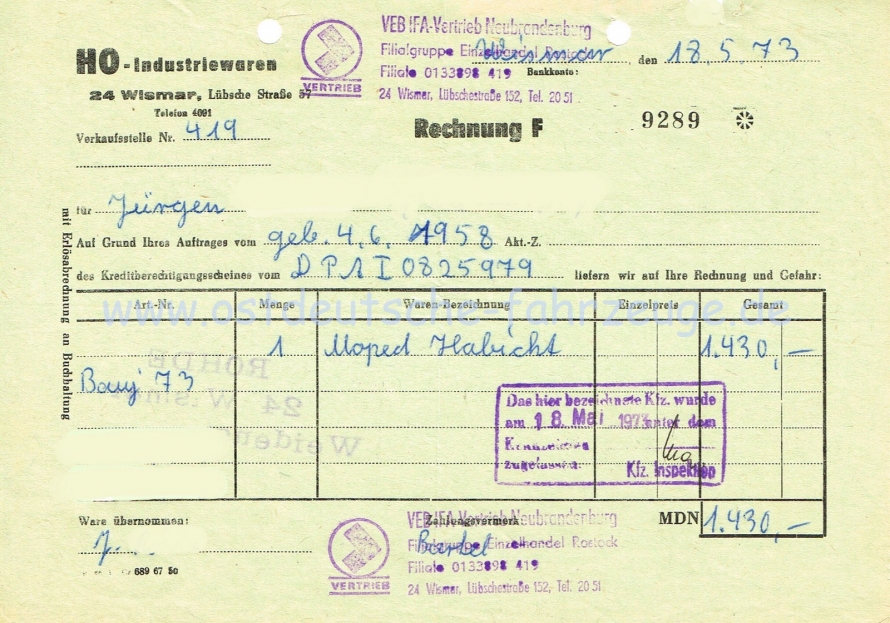 VEB IFA-Vertrieb Neubrandenburg
Filialgruppe Einzelhandel Rostock
Filiale 0133898 419
24 Wismar, Lübschestraße 152, Tel. 20 51
VERTRIEB
HO-Industriewaren
24 Wismar, Lübsche Straße 57
Telefon 4091
Verkaufsstelle Nr. 419
Wismar, den 18.5.73
Bankkonto:
Rechnung F 9289
für Jürgen
Auf Grund Ihres Auftrages vom geb. 4.6.1958 Akt.-Z.
des Kreditberechtigungsscheines vom DPA I 0825979 liefern wir auf Ihre Rechnung und Gefahr:
mit Erlösabrechnung an Buchhaltung
Art.-Nr. Menge Waren-Bezeichnung Einzelpreis Gesamt
www.ostdeutsche-fahrzeuge.de
1 Moped Habicht 1.430,—
Bauj 73
ROHDE
24 Wismar
Weiden
Das hier bezeichnete Kfz. wurde
am 18. Mai 1973 unter dem
Kennzeichen
zugelassen.
Kfz. Inspektion
MDN 1.430,—
Ware übernommen:
J.
Zahlungsvermerk
Bartel
VEB IFA-Vertrieb Neubrandenburg
Filialgruppe Einzelhandel Rostock
Filiale 0133898 419
24 Wismar, Lübschestraße 152, Tel. 20 51
VERTRIEB
689 67 50